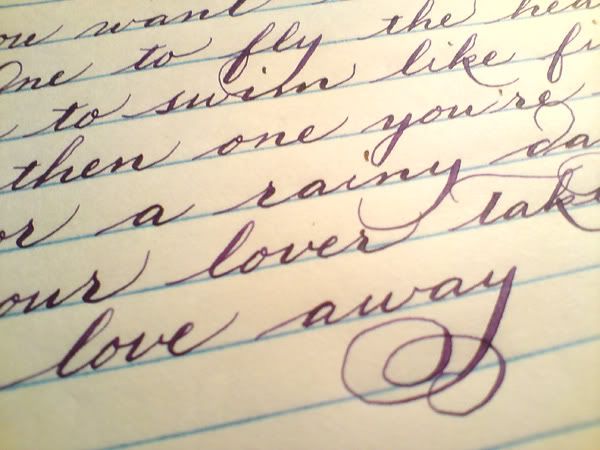 ou want
One to fly the hea
to swim like fi
then one you're
or a rainy da
our lover take
love away